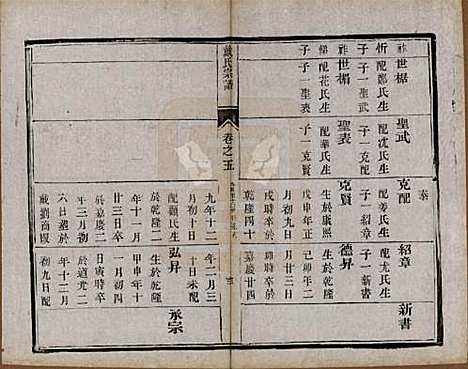 戴氏宗譜
卷之五
祚世椐
配鄭氏生
子一聖武
祚世楣
配花氏生
子一聖表
聖武
配沈氏生
子一克配
聖表
配華氏生
子一克賢
泰
克配
配姜氏生
子一紹章
克賢
生於康熙
戊申年正
月初九日
戌時卒於
乾隆四十
九年十二
月初十日
配顧氏生
於乾隆二
年十一月
廿三日卒
於嘉慶二
年三月初
六日葬於
戴劉商厰
新書
紹章
配尤氏生
子一新書
德昇
己卯年二
月廿三日
嘉慶廿四
年二月三
十日未配
弘昇
承宗
生於乾隆
甲申年十
一月初四
日寅時卒
於道光二
年十二月
初九日配